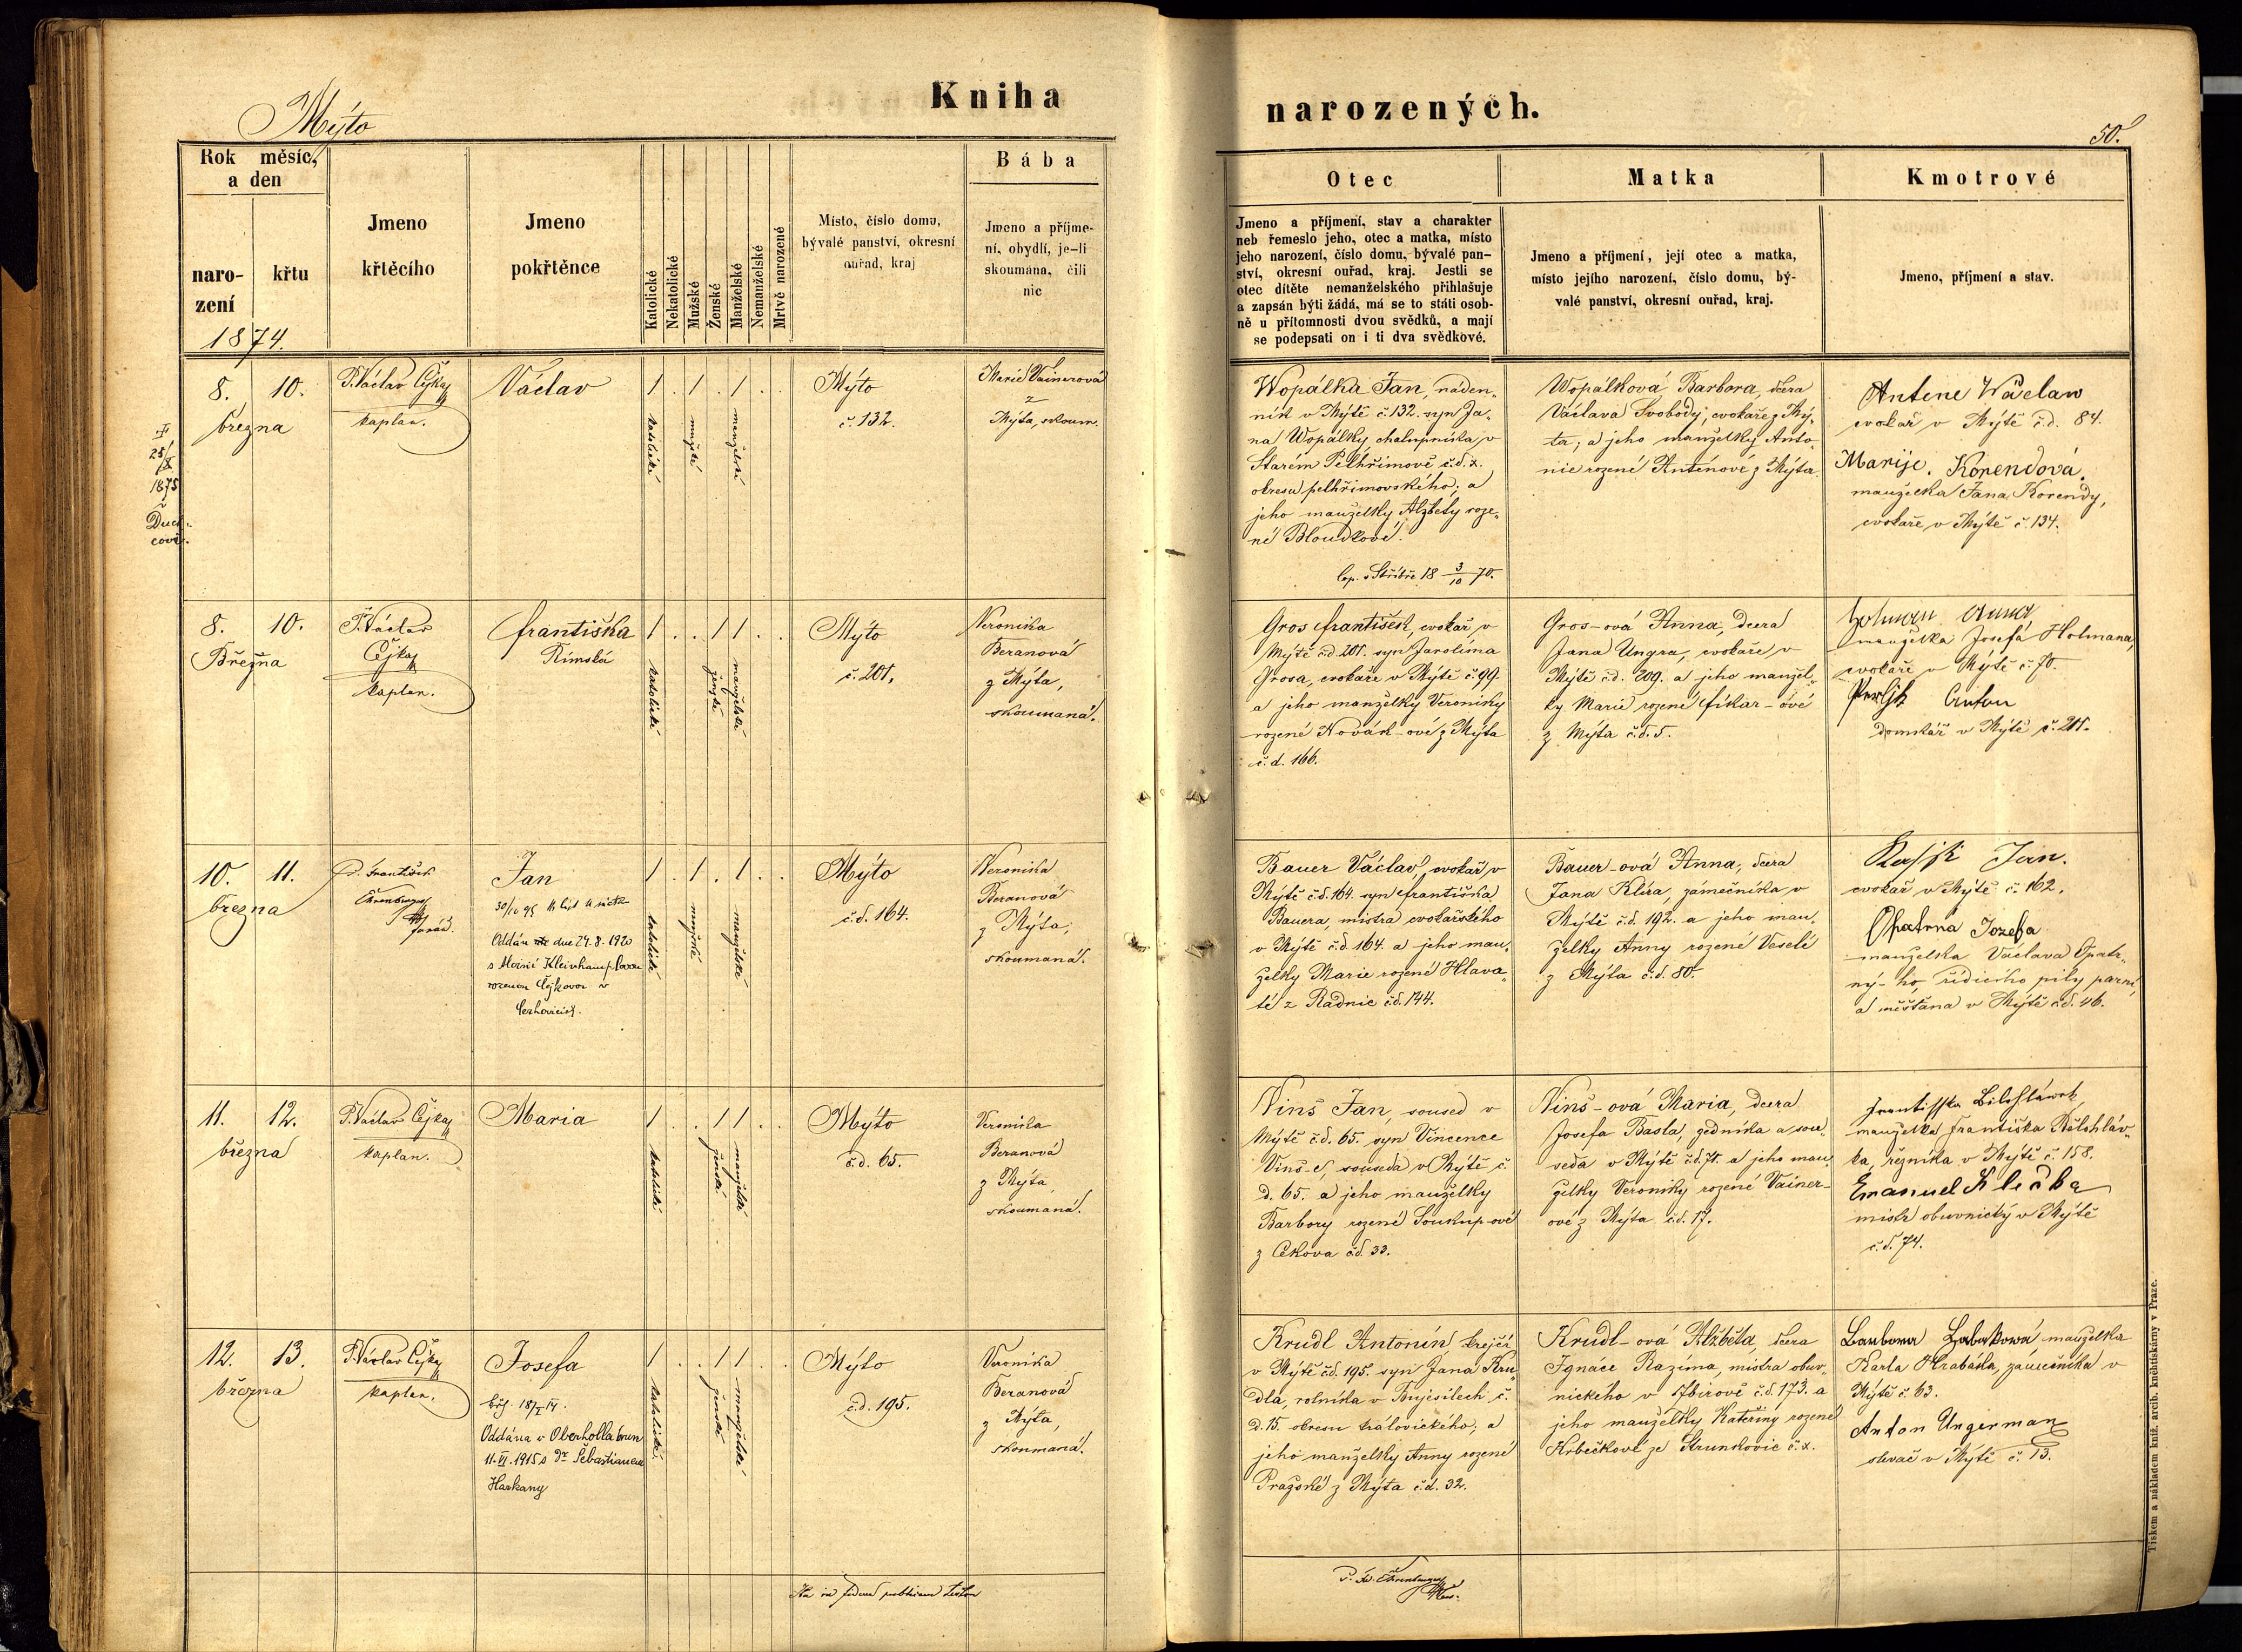 Mýto
Kniha
narozených.
50.
Rok měsíc,
a den
naro-
zení
křtu
1874.
Jmeno
křtěcího
Jmeno
pokřtěnce
Katolické
Nekatolické
Mužské
Ženské
Manželské
Nemanželské
Mrtvě narozené
Místo, číslo domu,
bývalé panství, okresní
ouřad, kraj
Bába
Jmeno a příjme-
ní, obydlí, je-li
skoumána, čili
nic
Otec
Jmeno a příjmení, stav a charakter
neb řemeslo jeho, otec a matka, místo
jeho narození, číslo domu, bývalé pan-
ství, okresní ouřad, kraj. Jestli se
otec dítěte nemanželského přihlašuje
a zapsán býti žádá, má se to státi osob-
ně u přítomnosti dvou svědků, a mají
se podepsati on i ti dva svědkové.
Matka
Jmeno a příjmení, její otec a matka,
místo jejího narození, číslo domu, bý-
valé panství, okresní ouřad, kraj.
Kmotrové
Jmeno, příjmení a stav.
25/
1875
8. 10.
března
P. Václav Čejka
kaplan.
Václav
1 . 1 . 1 . .
katolické
mužské
manželské
Mýto
č. 132.
Marie Vainerová
z
Mýta, skoum.
Wopálka Jan, náden-
ník v Mýtě č. 132. syn Ja-
na Wopálky, chalupníka v
Starém Pelhřimově č.d. x.
okresu pelhřimovského; a
jeho manželky Alžběty roze-
né Bloudkové.
cop. v Stříbře 18 3/10 70.
Wopálková Barbora, dcera
Václava Svobody, cvokaře z Mý-
ta; a jeho manželky Anto-
nie rozené Anténové z Mýta.
Antene Wáclaw
cvokař v Mýtě č.d. 84.
Marije. Korendová.
manželka Jana Korendy,
cvokaře v Mýtě č. 134.
8. 10.
Března
P. Václav
Čejka
kaplan.
Františka
Římská
1 . . 1 1 . .
katolické
ženské
manželské
Mýto
č. 201.
Veronika
Beranová
z Mýta,
skoumaná.
Gros František, cvokař v
Mýtě č.d. 201. syn Jarolíma
Grosa, cvokaře v Mýtě č. 99.
a jeho manželky Veroniky
rozené Novák-ové z Mýta
č.d. 166.
Gros-ová Anna, dcera
Jana Ungra, cvokaře v
Mýtě č.d. 209. a jeho manžel-
ky Marie rozené Fikar-ové
z Mýta č.d. 5.
Holman Anna
manželka Josefa Holmana,
cvokaře v Mýtě č. 70.
Anton
domkář v Mýtě č. 201.
10. 11.
března
P. František
Ehrenberger
farář.
Jan
Oddán dne 24. 8. 1920
rozenou Čejkovou v
1 . 1 . 1 . .
katolické
mužské
manželské
Mýto
č.d. 164.
Veronika
Beranová
z Mýta,
skoumaná.
Bauer Václav, cvokař v
Mýtě č.d. 164. syn Františka
Bauera, mistra cvokařského
v Mýtě č.d. 164. a jeho man-
želky Marie rozené Hlava-
té z Radnic č.d. 144.
Bauer-ová Anna, dcera
Jana Klíra, zámečníka v
Mýtě č.d. 192. a jeho man-
želky Anny rozené Veselé
z Mýta č.d. 80.
Jan.
cvokař v Mýtě č. 162.
Opatrna Jozefa
manželka Václava Opatr-
ný-ho, řídícího pily parní,
a měšťana v Mýtě č.d. 46.
11. 12.
března
P. Václav Čejka
kaplan.
Maria
1 . . 1 1 . .
katolické
ženské
manželské
Mýto
č.d. 65.
Veronika
Beranová
z Mýta,
skoumaná.
Vinš Jan, soused v
Mýtě č.d. 65. syn Vincence
Vinš-e, souseda v Mýtě č.
d. 65. a jeho manželky
Barbory rozené Soukup-ové
z Cekova č.d. 33.
Vinš-ová Maria, dcera
Josefa Basla, zedníka a sou-
seda v Mýtě č.d. 71. a jeho man-
želky Veroniky rozené Vainer-
ové z Mýta č.d. 17.
manželka Františka Bělohláv-
ka, řezníka v Mýtě č. 158.
Emanuel Klečka
mistr obuvnický v Mýtě
č.d. 74.
12. 13.
března
P. Václav Čejka
kaplan.
Josefa
Oddána v Oberhollabrun
11. VI. 1915 s Dr Šebastianem
Harkany
1 . . 1 1 . .
katolické
ženské
manželské
Mýto
č.d. 195.
Veronika
Beranová
z Mýta,
skoumaná.
Krudl Antonín, krejčí
v Mýtě č.d. 195. syn Jana Kru-
dla, rolníka v Bujesilech č.
d. 15. okresu královického; a
jeho manželky Anny rozené
Pražské z Mýta č.d. 32.
Krudl-ová Alžběta, dcera
Ignáce Razima, mistra obuv-
nického v Zbirově č.d. 173. a
jeho manželky Kateřiny rozené
Krbečkové ze Strunkovic č. x.
manželka
Karla Hrabáka, zámečníka v
Mýtě č. 63.
Anton Ungerman
slevač v Mýtě č. 13.
P. Fr. Ehrenberger
Tiskem a nákladem kníž. arcib. knihtiskárny v Praze.